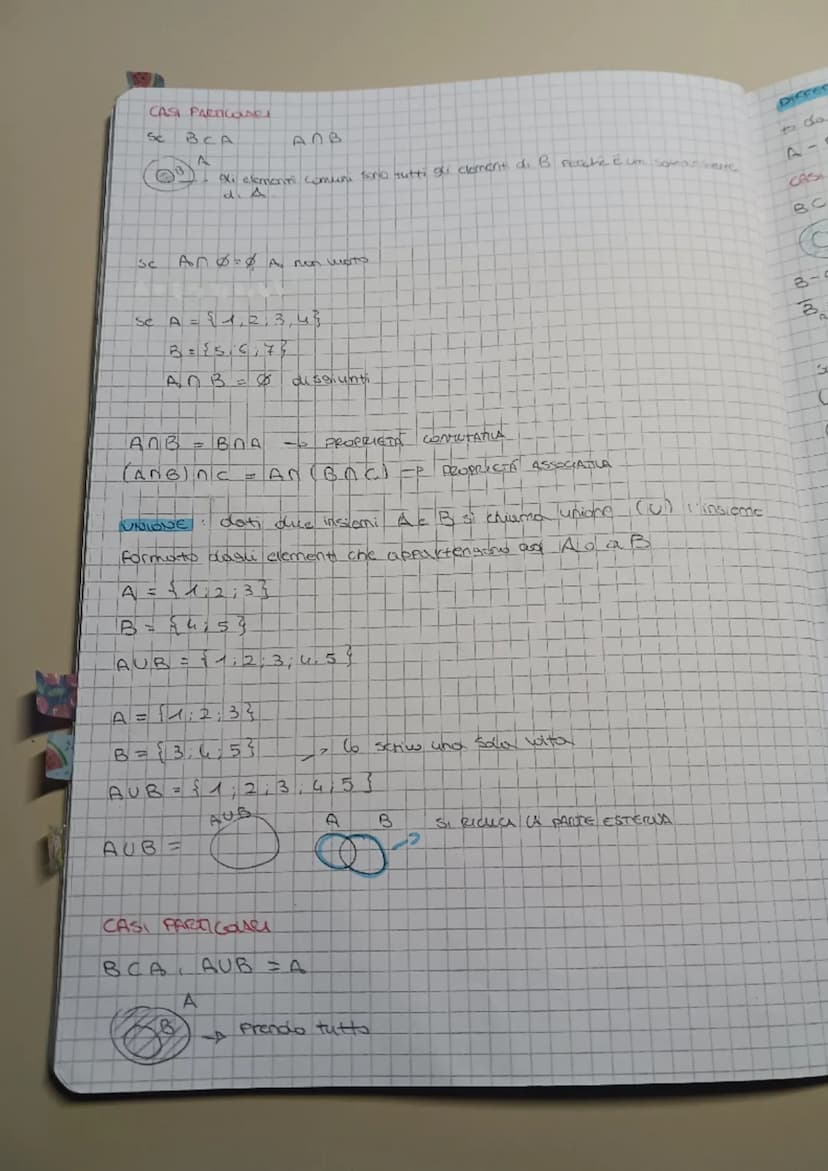 CASI PARTICOLARI
se B⊂A A∩B
A
B
gli elementi comuni sono tutti gli elementi di B perché è un
di A
se A∩∅=∅ A, non vuoto
se A = {1,2,3,4}
B = {5;6;7}
A∩B = ∅ disgiunti
A∩B = B∩A → PROPRIETÀ COMMUTATIVA
(A∩B)∩C = A∩(B∩C) → PROPRIETÀ ASSOCIATIVA
UNIONE: dati due insiemi A e B si chiama unione (∪) l'insieme
formato dagli elementi che appartengono ad A o a B
A = {1;2;3}
B = {4;5}
A∪B = {1;2;3;4;5}
A = {1;2;3}
B = {3;4;5} → lo scrivo una sola volta
A∪B = {1;2;3;4;5}
A∪B
A B SI RICALCA LA PARTE ESTERNA
A∪B =
CASI PARTICOLARI
B⊂A, A∪B = A
A
B → Prendo tutto
A -
CASI
B⊂
B-